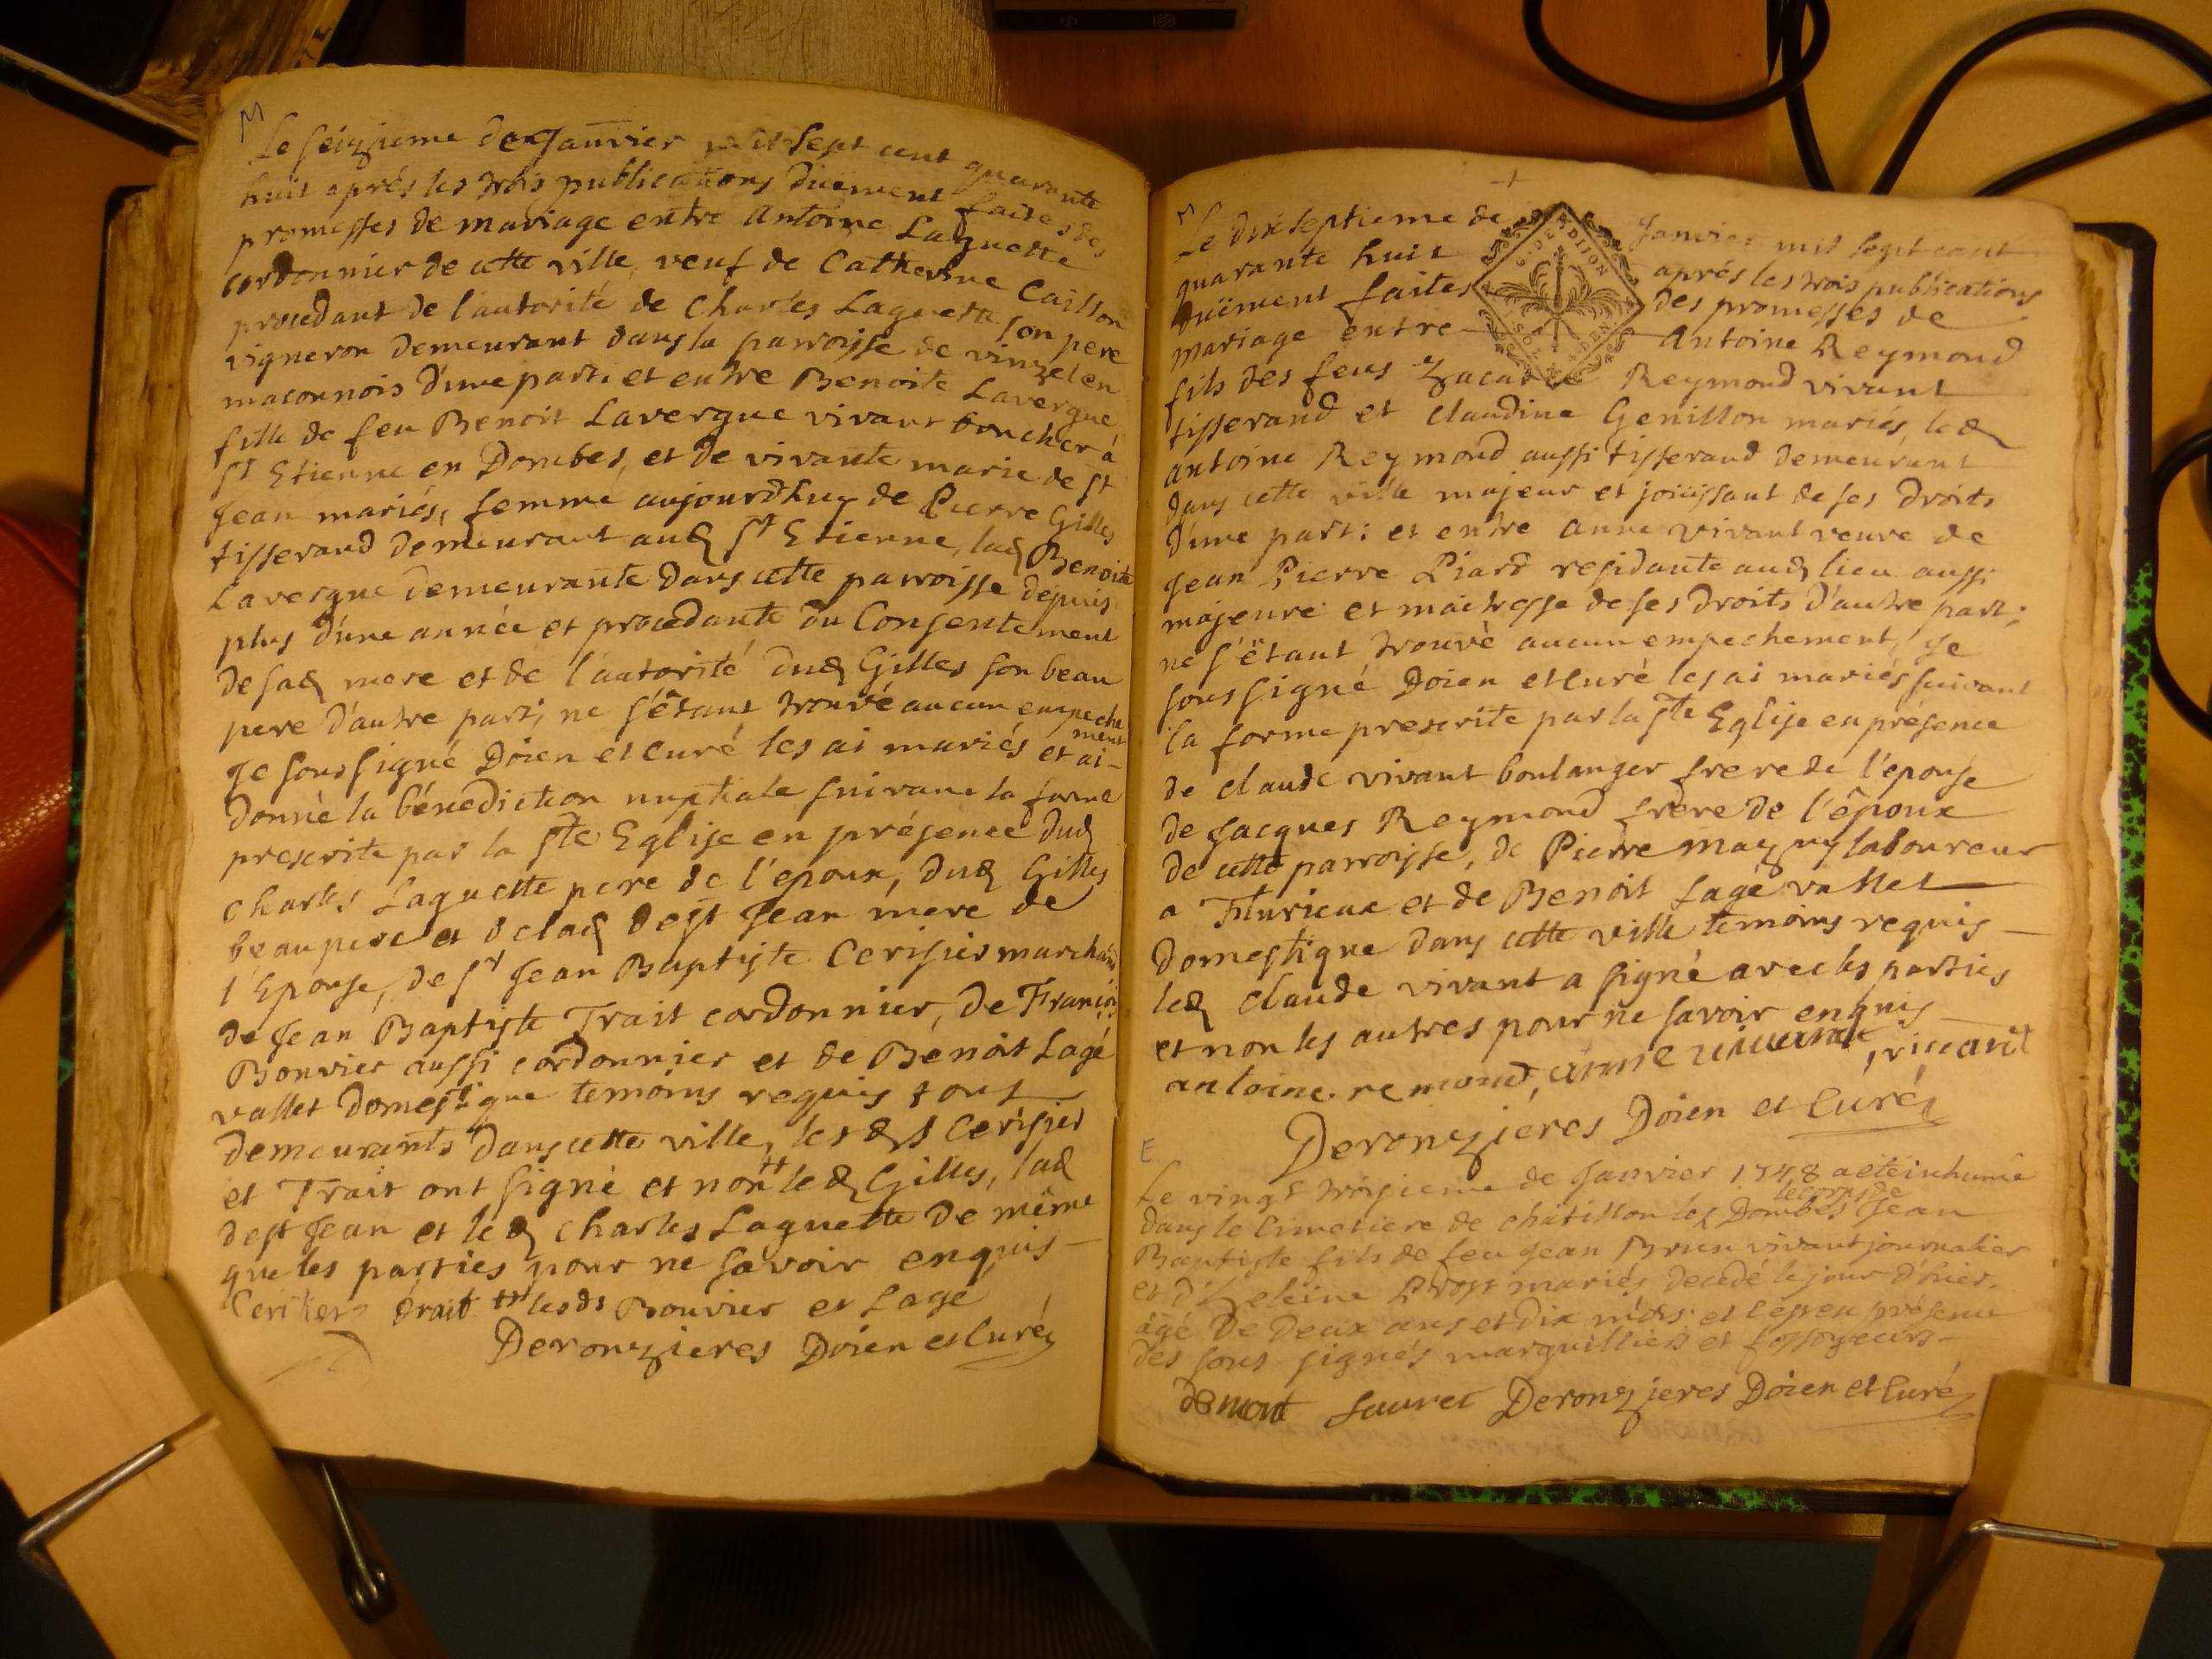 M
Le seizieme de Janvier mil sept cent quarante
huit aprés les trois publications duëment faites des
promesses de mariage entre Antoine Laguette
cordonnier de cette ville, veuf de Catherine Caisson
procedant de l'autorité de Charles Laguette son pere
vigneron demeurant dans la parroisse de vinzelen
maconnois d'une part: et entre Benoite Lavergne
fille de feu Benoit Lavergne vivant boucher à
St Etienne en Dombes, et de vivante marie de St
Jean mariés, femme aujourdhuy de Pierre Gilles
tisserand demeurant aud St Etienne, lad Benoite
Lavergne demeurante dans cette parroisse depuis
plus d'une année et procedante du Consentement
de sad mere et de l'autorité dud Gilles son beau
pere d'autre part; ne s'étant trouvé aucun empeche
ment
Je soussigné Doien et curé les ai mariés et ai-
donné la bénediction nuptiale suivant la forme
prescrite par la ste Eglise en présence dud
Charles Laguette pere de l'epoux, dud Gilles
beaupere et de lad de st Jean mere de
l'Epouse, de sr Jean Baptiste Cerisier marchand
de Jean Baptiste Trait cordonnier, de François
Bonvier aussi cordonnier et de Benoit Lagé
vallet domestique temoins requis tous
demeurants dans cette ville, les ds Cerisier
et Trait ont signé et non tt le d Gilles, lad
de st Jean et led Charles Laguette de même
que les parties pour ne savoir enquis
Cerisier trait tt les ds Bouvier et Lagé
Deronzieres Doien et Curé
M
Le dix septieme de Janvier mil sept cent
quarante huit aprés les trois publications
duëment faites des promesses de
mariage entre Antoine Reymond
fils des feus Zacarie Reymond vivant
tisserand et Claudine Genillon mariés, led
antoine Reymond aussi tisserand demeurant
dans cette ville majeur et joüissant de ses droits
d'une part: et entre anne vivant veuve de
Jean Pierre Piard residante aud lieu aussi
majeure et maitresse de ses droits d'autre part;
ne s'étant trouvé aucun empechement, Je
sous signé Doien et curé les ai mariés suivant
la forme prescrite par la ste Eglise en présence
de claude vivant boulanger frere de l'epouse
de Jacques Reymond frere de l'époux
de cette parroisse, de Pierre laboureur
a Flurieux et de Benoit Lagé vallet
domestique dans cette ville temoins requis
led Claude vivant a signé avec les parties
et non les autres pour ne savoir enquis
antoine remond, anne vivant, vivant
Deronzieres Doien et Curé
E
Le vingt troisieme de Janvier 1748 a eté inhumé
le corps de
dans le Cimetiere de châtillon lez Dombes Jean
Baptiste fils de feu Jean Brun vivant journalier
et d'heleine Prost mariés, decedé le jour d'hier
agé de Deux ans et dix mois et ce en présence
des sous signés marguilliers et fossoyeurs
demont Sauvet Deronzieres Doien et Curé